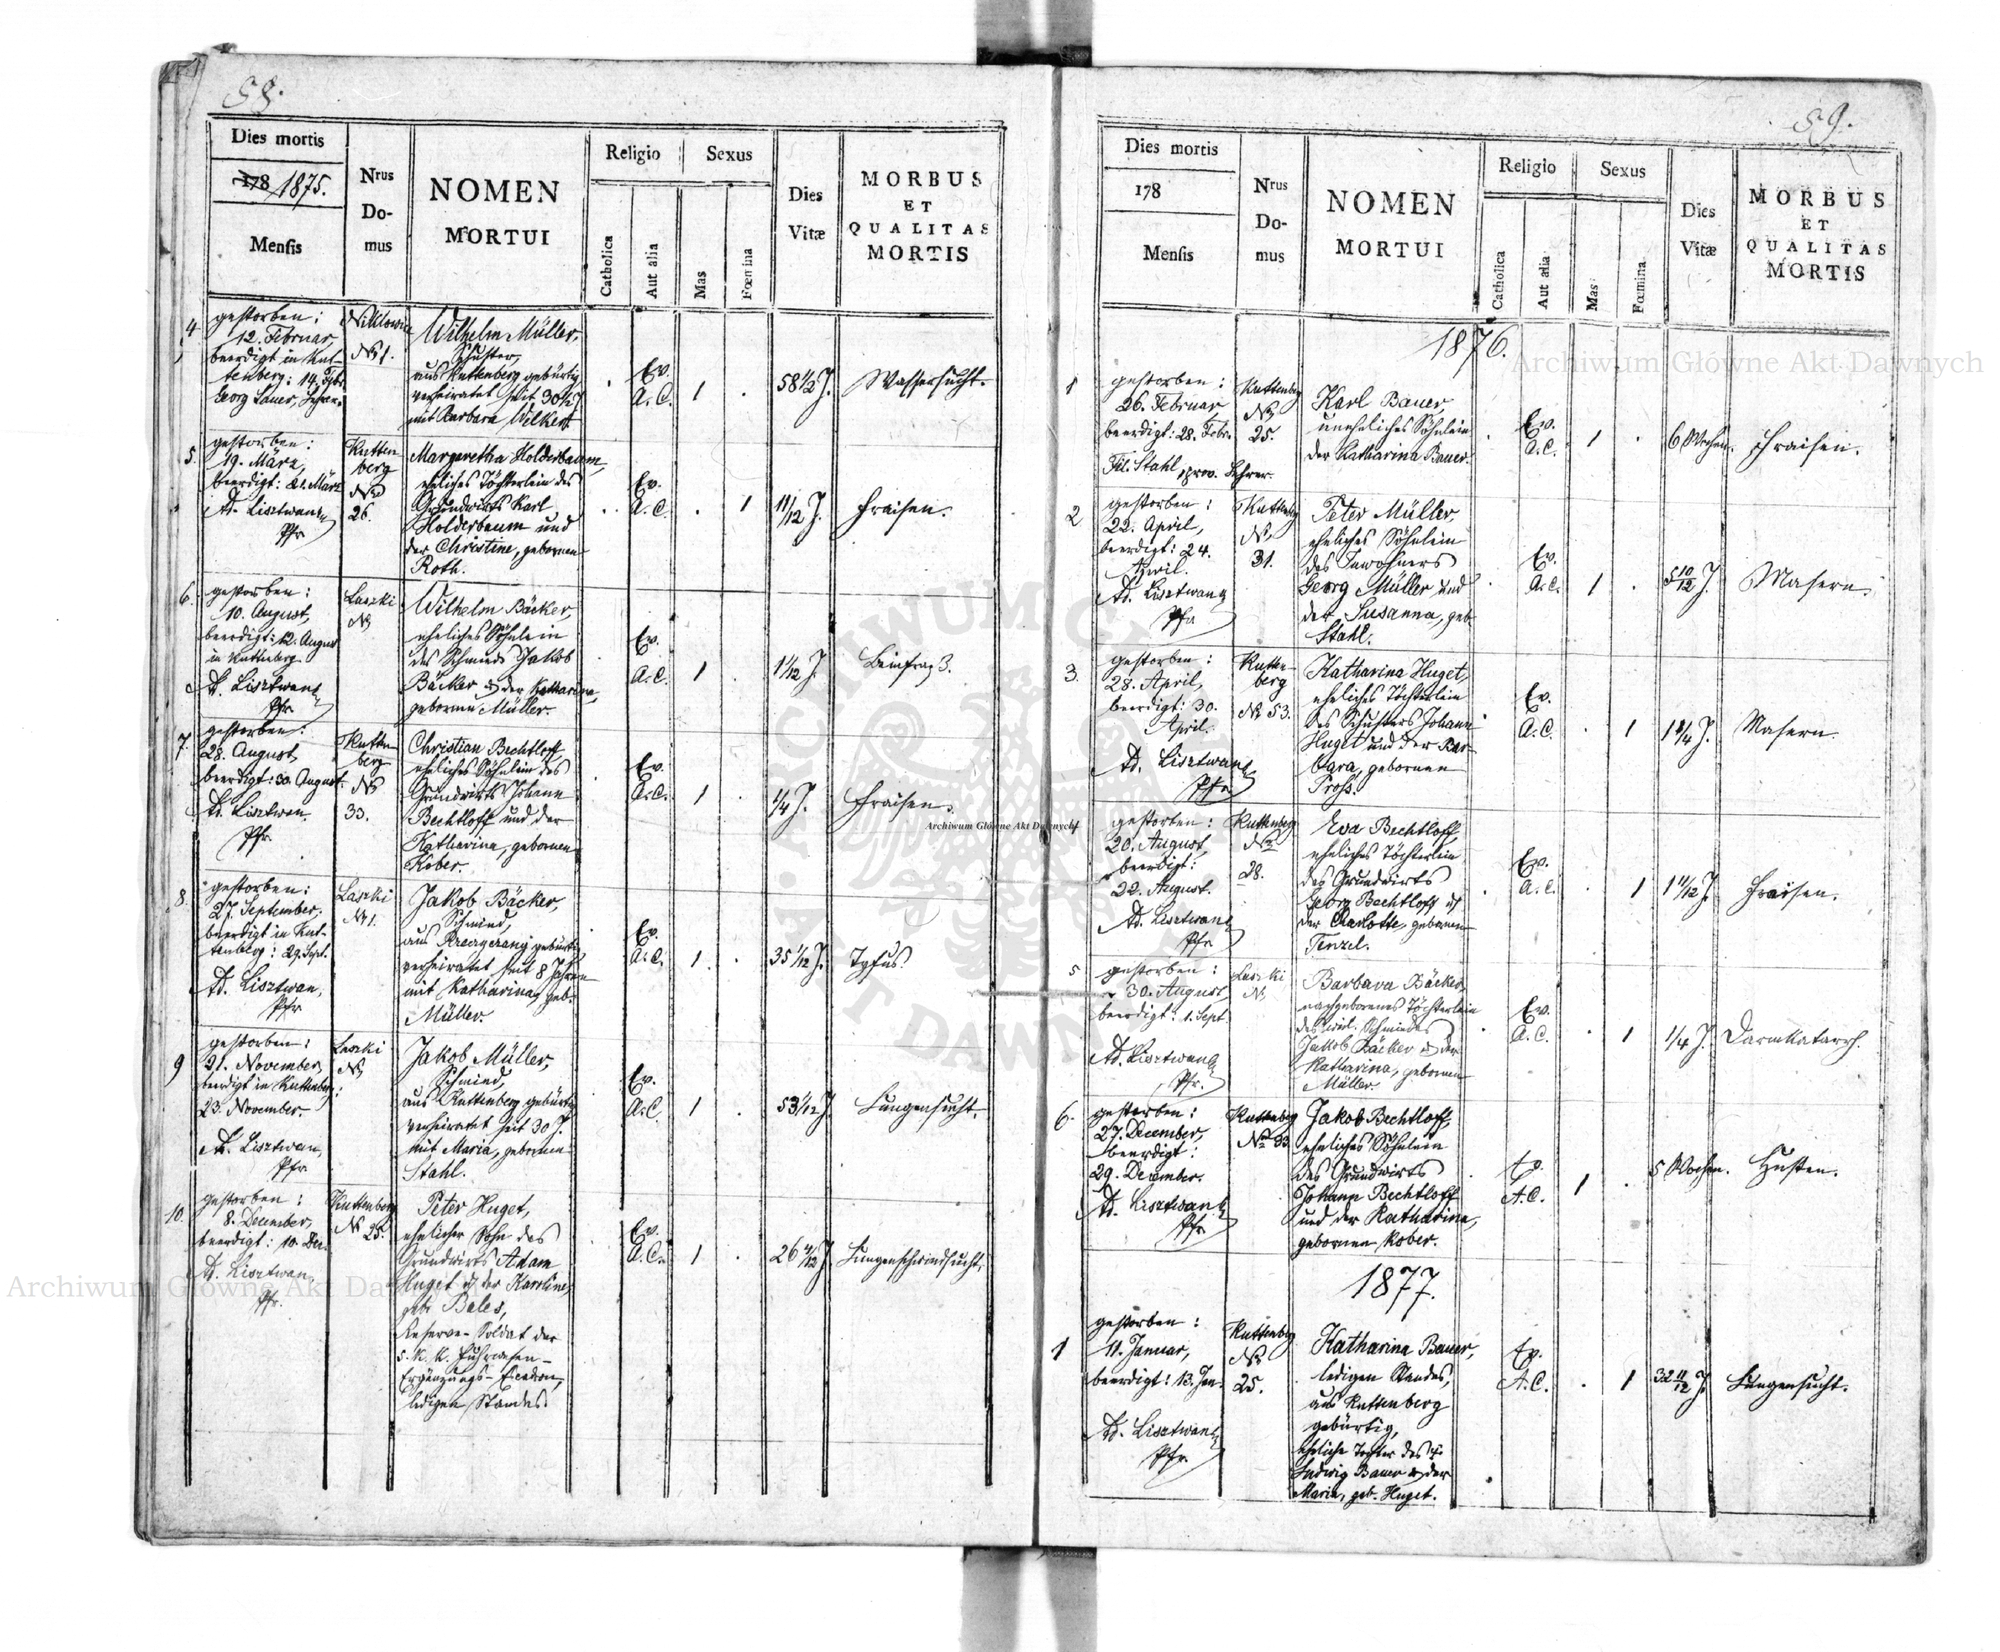 58.
Dies mortis
178 1875.
Mensis
Nrus
Do-
mus
NOMEN
MORTUI
Religio
Catholica
Aut alia
Sexus
Mas
Fœmina
Dies
Vitæ
MORBUS
ET
QUALITAS
MORTIS
4.
gestorben:
12. Februar,
beerdigt in Kut-
tenberg: 14. Febr.
Georg Bauer,
Niklowice
No 1.
Wilhelm Müller,
Schuster,
aus Kuttenberg gebürtig
verheiratet seit 30 1/2 J.
mit Barbara Wilkert
Ev.
A. C.
1
58 1/2 J.
Wassersucht.
5.
gestorben:
19. März,
beerdigt: 21. März
Ad. Lisztwan
Pfr.
Kutten
berg
No
26.
Margaretha Holderbaum,
eheliches Töchterlein des
Grundwirts Karl
Holderbaum und
der Christine, gebornen
Roth.
Ev.
A. C.
1
11/12 J.
Fraisen.
6.
gestorben:
10. August,
beerdigt: 12. August
in Kuttenberg
Ad. Lisztwan
Pfr.
Laszki
No
Wilhelm Bäcker,
eheliches Söhnlein
des Schmieds Jakob
Bäcker & der Katharina,
gebornen Müller.
Ev.
A. C.
1
1 1/12 J.
Beinfraß.
7.
gestorben:
28. August,
beerdigt: 30. August.
Ad. Lisztwan
Pfr.
Kutten
berg
No
33.
Christian Bechtloff
eheliches Söhnlein des
Grundwirts Johann
Bechtloff und der
Katharina, gebornen
Kober.
Ev.
A. C.
1
1/4 J.
Fraisen.
8.
gestorben:
27. September,
beerdigt in Kut-
tenberg: 29. Sept.
Ad. Lisztwan,
Pfr
Laszki
No 1.
Jakob Bäcker,
Schmied,
aus gebürtig
verheiratet seit 8 Jahren
mit Katharina, geb.
Müller.
Ev.
A. C.
1.
35 1/12 J.
Tyfus.
9
gestorben:
21. November,
beerdigt in Kuttenberg:
23. November.
Ad. Lisztwan,
Pfr
Laszki
No
Jakob Müller,
Schmied,
aus Kuttenberg gebürtig
verheiratet seit 30 J.
mit Maria, gebornen
Stahl.
Ev.
A. C.
1
53 1/12 J
Lungensucht
10.
gestorben:
8. December,
beerdigt: 10. Dec.
Ad. Lisztwan,
Pfr.
Kuttenberg
No 25.
Peter Huget,
ehelicher Sohn des
Grundwirts Adam
Huget & der Karoline,
geb. Bales,
Reserve-Soldat der
5. K. K. Fuhrwesen-
Ergänzungs-Escadron,
ledigen Standes.
Ev.
A. C.
1
26 4/12 J.
Lungenschwindsucht.
59.
Dies mortis
178
Mensis
Nrus
Do-
mus
NOMEN
MORTUI
Religio
Catholica
Aut alia
Sexus
Mas
Fœmina
Dies
Vitæ
MORBUS
ET
QUALITAS
MORTIS
1876.
1
gestorben:
26. Februar,
beerdigt: 28. Febr.
Fil. Stahl, prov. Lehrer.
Kuttenberg
No
25.
Karl Bauer,
uneheliches Söhnlein
der Katharina Bauer.
Ev.
A. C.
1
6 Wochen.
Fraisen.
2
gestorben:
22. April,
beerdigt: 24.
April.
Ad. Lisztwan
Pfr
Kuttenberg
No
31.
Peter Müller,
eheliches Söhnlein
des Inwohners
Georg Müller und
der Susanna, geb.
Stahl.
Ev.
A. C.
1
5 10/12 J.
Masern.
3.
gestorben:
28. April,
beerdigt: 30.
April.
Ad. Lisztwan
Pfr.
Kutten-
berg
No 53.
Katharina Huget,
eheliches Töchterlein
des Schusters Johann
Huget und der Bar-
bara, gebornen
Pross.
Ev.
A. C.
1
1 1/4 J.
Masern.
4
gestorben:
20. August,
beerdigt:
22. August.
Ad. Lisztwan
Pfr
Kuttenberg
No
28.
Eva Bechtloff,
eheliches Töchterlein
des Grundwirts
Georg Bechtloff &
der Charlotte, gebornen
Tenzel.
Ev.
A. C.
1
1 11/12 J.
Fraisen.
5
gestorben:
30. August,
beerdigt: 1. Sept.
Ad. Lisztwan
Pfr.
Laszki
No
Barbara Bäcker,
nachgeborenes Töchterlein
des weil. Schmiedes
Jakob Bäcker & der
Katharina, gebornen
Müller.
Ev.
A. C.
1
1/4 J.
Darmkatarrh.
6.
gestorben:
27. December,
beerdigt:
29. December.
Ad. Lisztwan
Pfr.
Kuttenberg
No 33
Jakob Bechtloff,
eheliches Söhnlein
des Grundwirts
Johann Bechtloff
und der Katharina,
gebornen Kober.
Ev.
A. C.
1
5 Wochen.
Husten.
1877.
1
gestorben:
11. Januar,
beerdigt: 13. Jan.
Ad. Lisztwan
Pfr.
Kuttenberg
No
25.
Katharina Bauer,
ledigen Standes,
aus Kuttenberg
gebürtig,
eheliche Tochter des
Ludwig Bauer & der
Maria, geb. Huget.
Ev.
A. C.
1
32 11/12 J.
Lungensucht.
Archiwum Główne Akt Dawnych
Archiwum Główne Akt Dawnych
Archiwum Główne Akt Dawnych